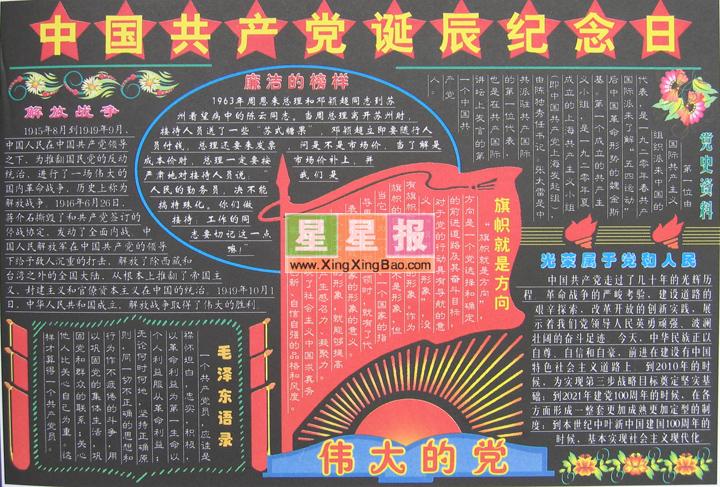 中国共产党诞辰纪念日
解放战争
1945年8月到1949年9月，
中国人民在中国共产党领导
之下，为推翻国民党的反动
统治，进行了一场伟大的
国内革命战争，历史上称为
解放战争。1946年6月26日，
蒋介石撕毁了和共产党签订的
停战协定，发动了全面内战，中
国人民解放军在中国共产党的领导
下给予敌人沉重的打击，解放了除西藏和
台湾之外的全国大陆，从根本上推翻了帝国主
义、封建主义和官僚资本主义在中国的统治。1949年10月1
日，中华人民共和国成立，解放战争取得了伟大的胜利
廉洁的榜样
1963年周恩来总理和邓颖超同志到苏
州看望病中的陈云同志。当周总理离开苏州时，
接待人员送了一些“苏式糖果”，邓颖超立即要随行人
员付钱，总理还要来发票 问是不是市场价，当了解是
成本价时，总理一定要按 市场价补上，并
严肃地对接待人员说， 我们是
人民的勤务员，决不能
搞特殊化，你们做
接待工作的同
志要切记这一点
嘛！”
党史资料
第一位由
共产国际
组织派来中国的
代表，是一九二零年春共产
国际派来了解“五四运动”
后中国革命形势的魏金斯
基。第一个成立的共产主
义小组，是一九二零年夏
成立的上海共产主义小组
由陈独秀任书记。张太雷是中
共派驻共产国际
的第一位代表，
也是在共产国际
讲坛上发言的第
一个中国共
产党
人。
旗帜就是方向
“旗帜就是方向”，
方向是一个党选择和确定
的前进道路及其奋斗目标
星星报
www.XingXingBao.com
光荣属于党和人民
中国共产党走过了几十年的光辉历
程，革命战争的严峻考验，建设道路的
艰辛探索，改革开放的创新实践，展
示着我们党领导人民英勇顽强、波澜
壮阔的奋斗足迹。今天，中华民族正以
自尊、自信和自豪，前进在建设有中国
特色社会主义道路上。到2010年的时
候，为实现第三步战略目标奠定坚实基
础；到2021年建党100周年的时候，在各
方面形成一整套更加成熟更加定型的制
度；到本世纪中叶新中国建国100周年的
时候，基本实现社会主义现代化
毛泽东语录
一个共产党员，应该是
襟怀坦白，忠实，积极，
以革命利益为第一生命，以
个人利益服从革命利益；
无论何时何地，坚持正确原
则，同一切不正确的思想和
行为作不疲倦的斗争，用
以巩固党的集体生活，巩
固党和群众的联系；关心
他人比关心自己为重。这
样才算得一个共产党员。
伟大的党